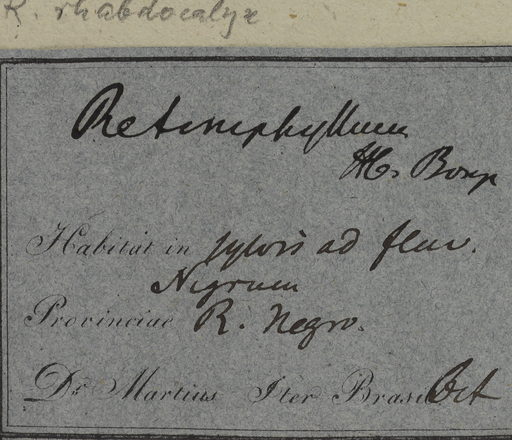 R. rhabdocalyx
Retiniphyllum
H. Bonp
Habitat in sylvis ad fluv.
Nigrum
Provinciae R. Negro.
Dr. Martius Iter Brasil Oct